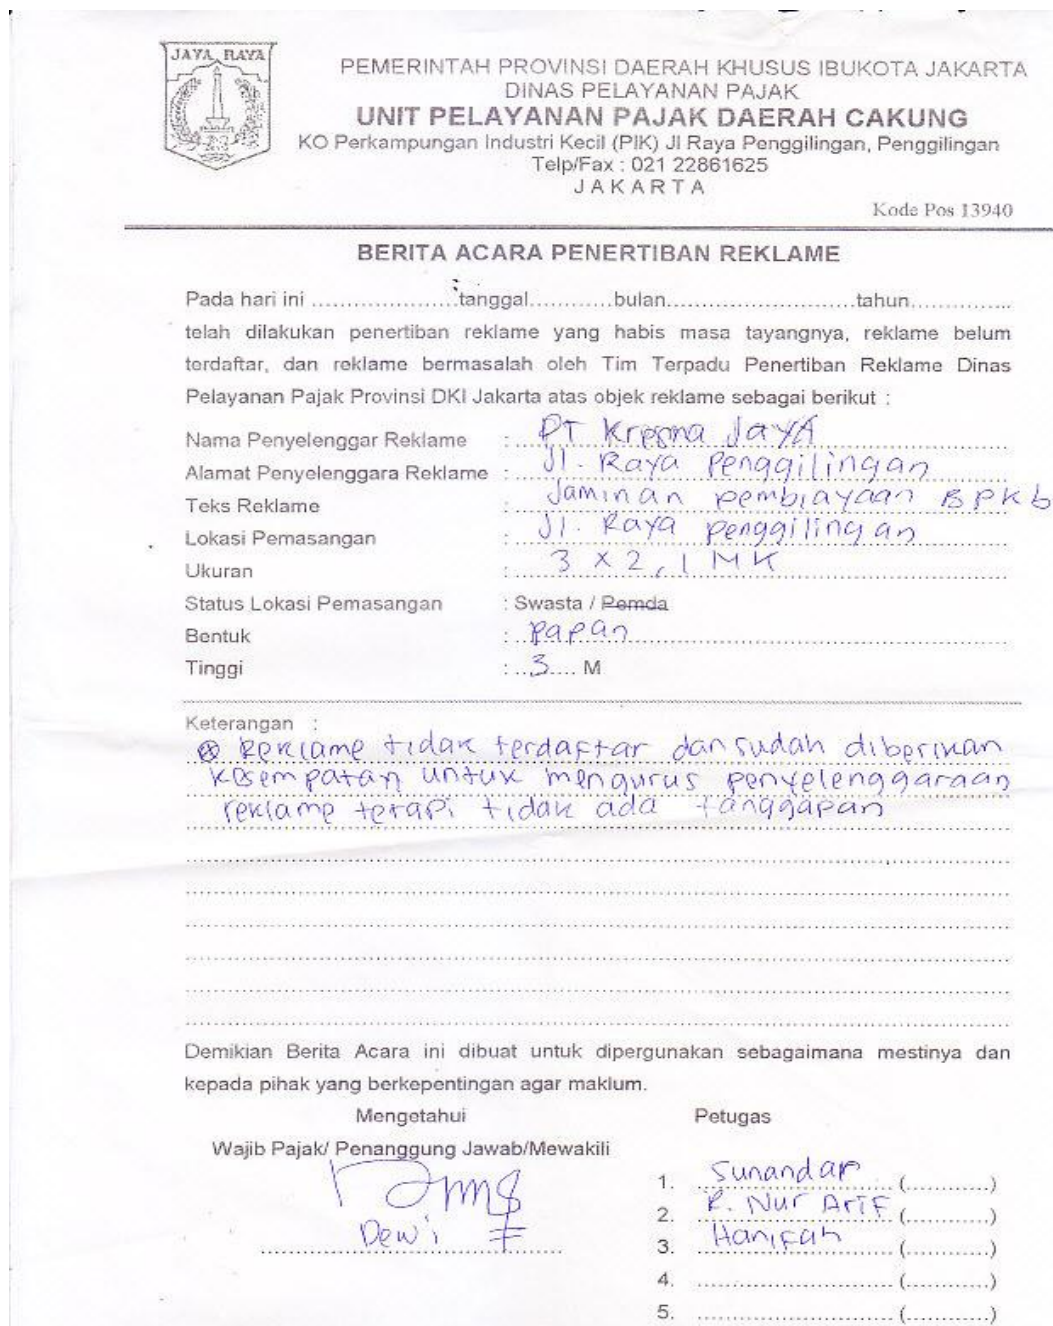 JAYA RAYA
PEMERINTAH PROVINSI DAERAH KHUSUS IBUKOTA JAKARTA
DINAS PELAYANAN PAJAK
UNIT PELAYANAN PAJAK DAERAH CAKUNG
KO Perkampungan Industri Kecil (PIK) Jl Raya Penggilingan, Penggilingan
Telp/Fax : 021 22861625
JAKARTA
Kode Pos 13940
BERITA ACARA PENERTIBAN REKLAME
Pada hari ini ..................... tanggal ........... bulan ........................... tahun ..............
telah dilakukan penertiban reklame yang habis masa tayangnya, reklame belum
terdaftar, dan reklame bermasalah oleh Tim Terpadu Penertiban Reklame Dinas
Pelayanan Pajak Provinsi DKI Jakarta atas objek reklame sebagai berikut :
Nama Penyelenggar Reklame : PT Kresna Jaya
Alamat Penyelenggara Reklame : Jl. Raya Penggilingan
Teks Reklame : Jaminan pembiayaan BPKb
Lokasi Pemasangan : Jl. Raya penggilingan
Ukuran : 3 x 2,1 MK
Status Lokasi Pemasangan : Swasta / Pemda
Bentuk : papan
Tinggi : 3 M
Keterangan :
Reklame tidak terdaftar dan sudah diberikan
kesempatan untuk mengurus penyelenggaraan
reklame tetapi tidak ada tanggapan
Demikian Berita Acara ini dibuat untuk dipergunakan sebagaimana mestinya dan
kepada pihak yang berkepentingan agar maklum.
Mengetahui
Wajib Pajak/ Penanggung Jawab/Mewakili
Dewi F
Petugas
1. Sunandar (...........)
2. R. Nur Arif (...........)
3. Hanifah (...........)
4. ........................... (...........)
5. ........................... (...........)